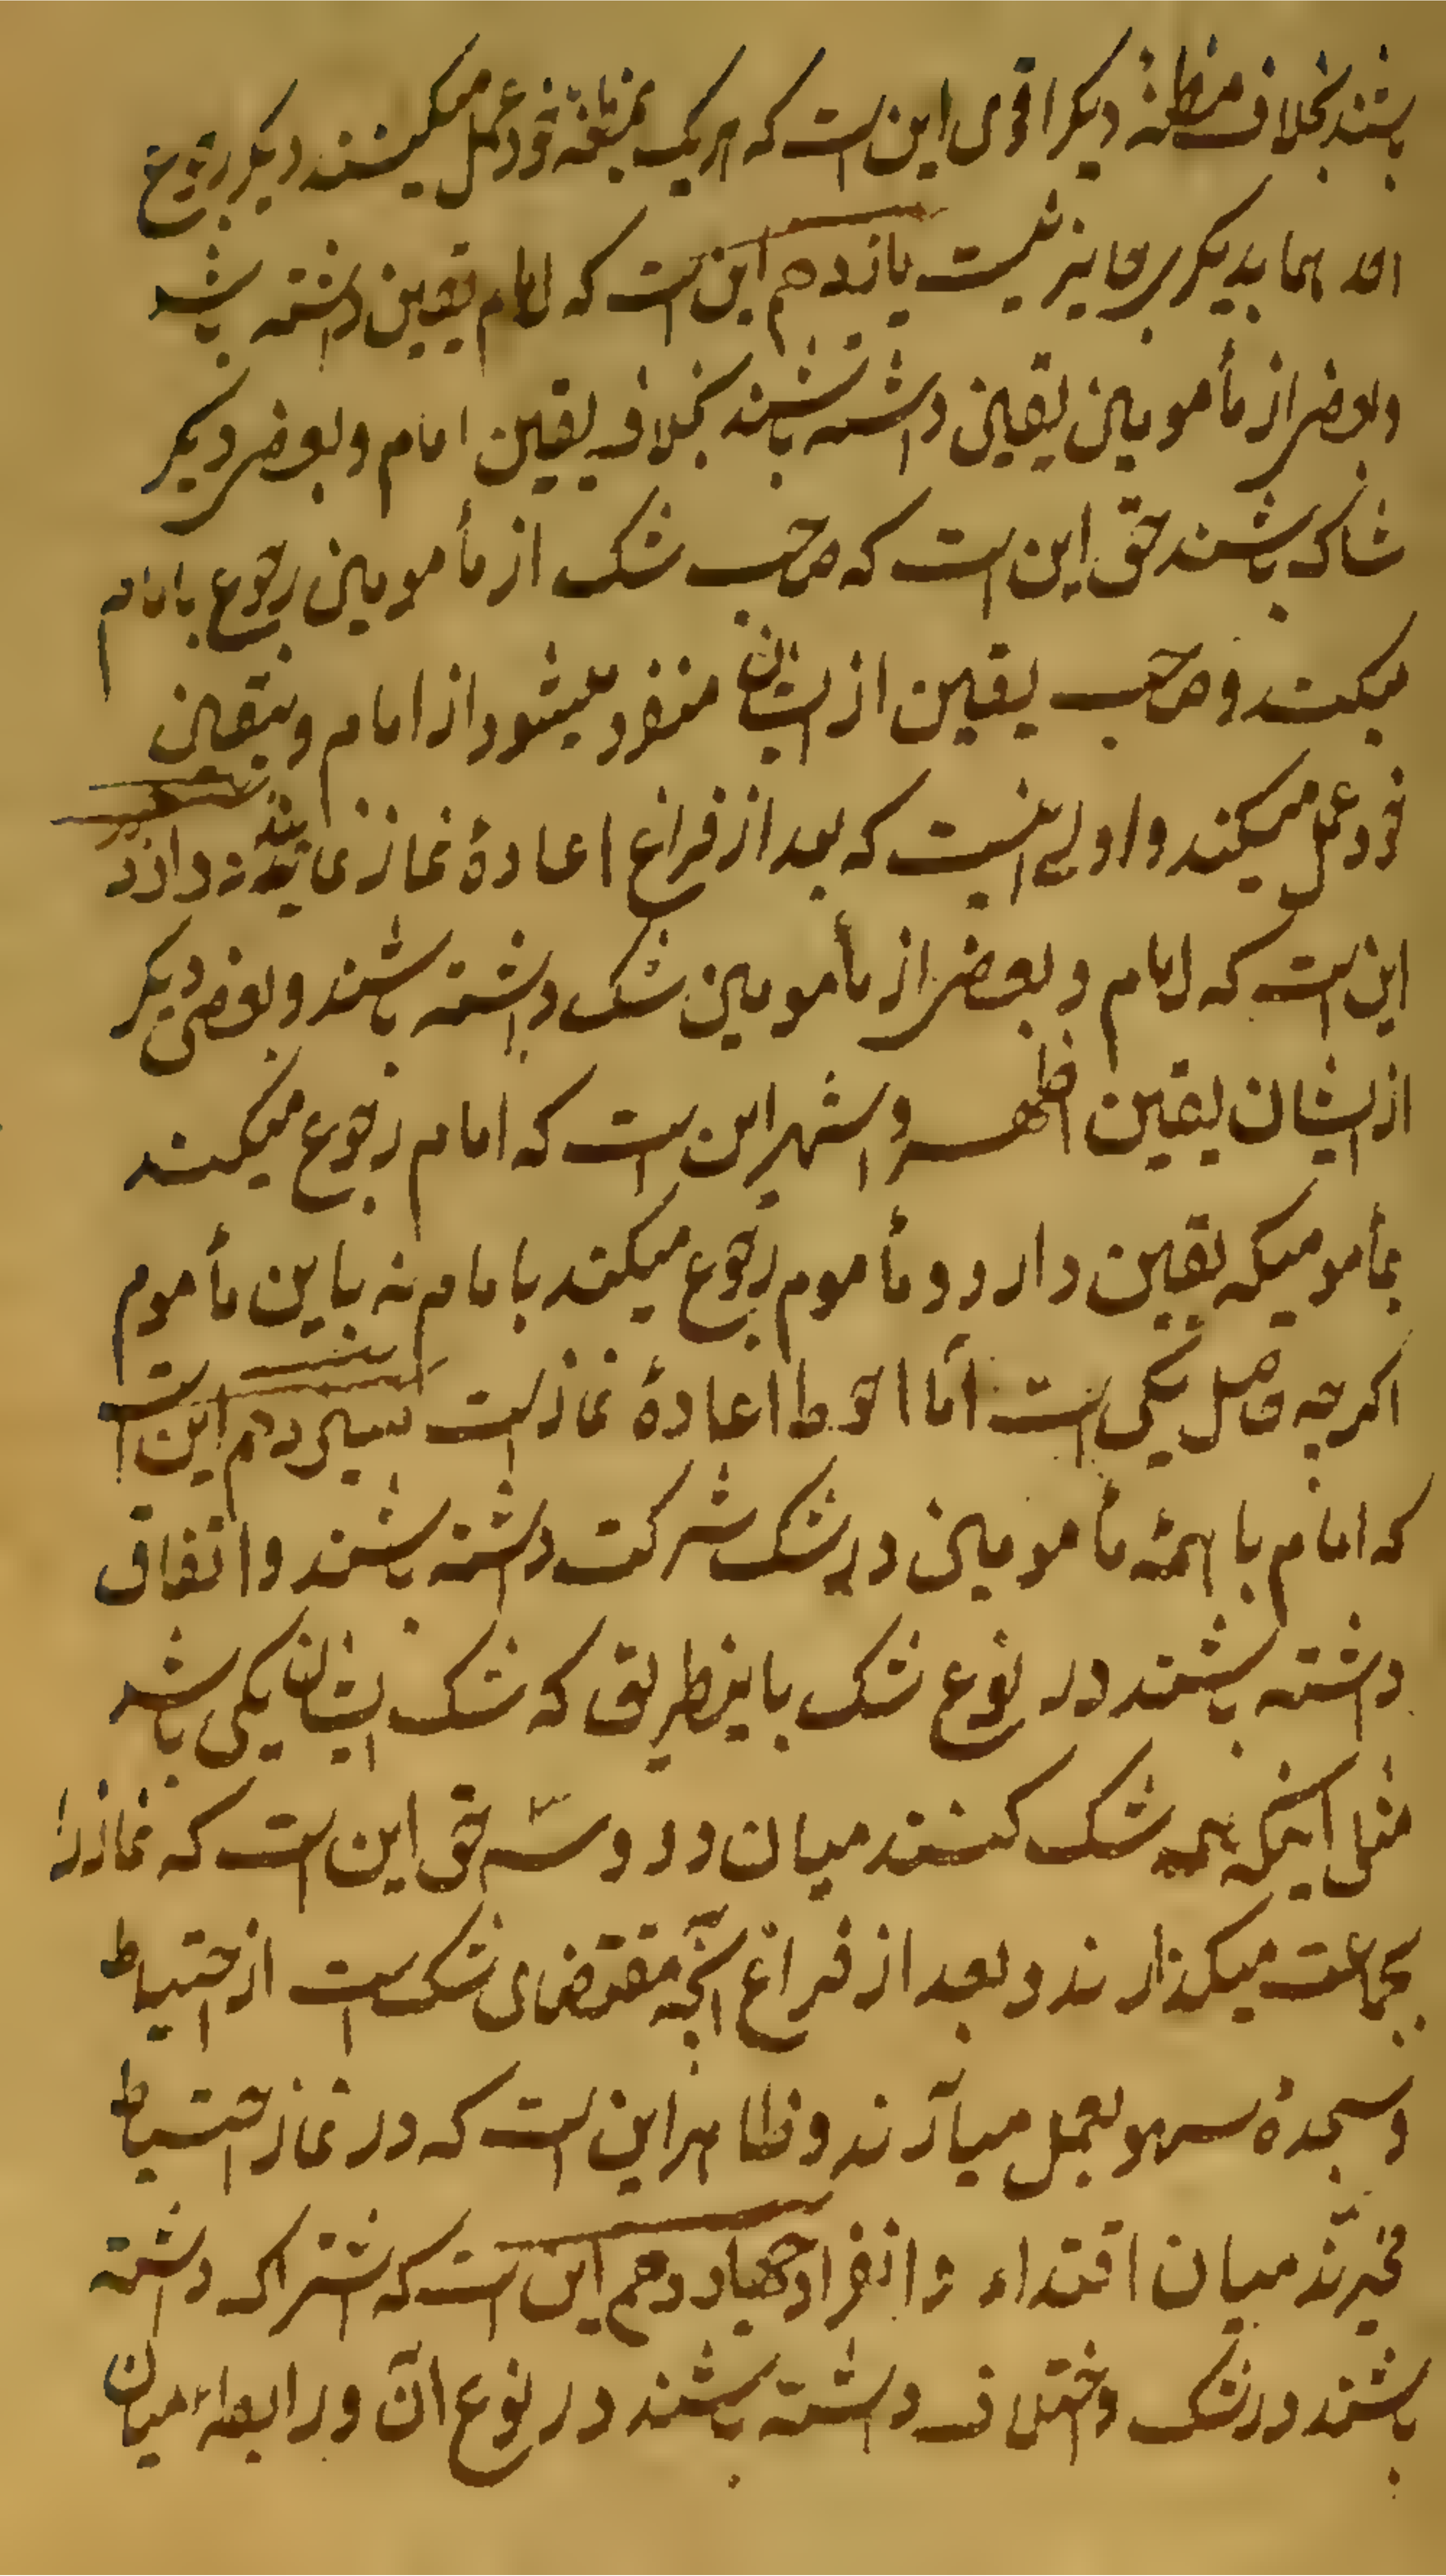 باشند بخلاف مظنهٔ دیکر اقوی این است که هر یک بمظنهٔ خود عمل میکنند دیکر رجوع
احدهما بدیکری جایز نیست یازدهم این است که امام یقین داشته باشد
و بعضی از مأمومین یقین داشته باشند بخلاف یقین امام و بعضی دیکر
شاک باشند حق این است که صاحب شک از مأمومین رجوع بامام
میکند و صاحب یقین از ایشان منفرد میشود از امام و بیقین
خود عمل میکند و اولی اینست که بعد از فراغ اعادهٔ نماز نمایند دوازدهم
این است که امام و بعضی از مأمومین شک داشته باشند و بعضی دیکر
از ایشان یقین اظهر و اشهر این است که امام رجوع میکند
بمأمومیکه یقین دارد و مأموم رجوع میکند بامام نه باین مأموم
اکر چه حاصل یکی است امّا احوط اعادهٔ نماز است سیزدهم این است
که امام با همهٔ مأمومین در شک شرکت داشته باشند و اتفاق
داشته باشند در نوع شک باینطریق که شک ایشان یکی باشد
مثل اینکه همه شک کنند میان دو و سه حق این است که نماز را
بجماعت میکذارند و بعد از فراغ آنچه مقتضای شک است از احتیاط
و سجدهٔ سهو بعمل میآرند و ظاهر این است که در نماز احتیاط
مخیرند میان اقتداء و انفراد چهاردهم این است که اشتراک داشته
باشند در شک و اختلاف داشته باشند در نوع آن و رابطهٔ میان